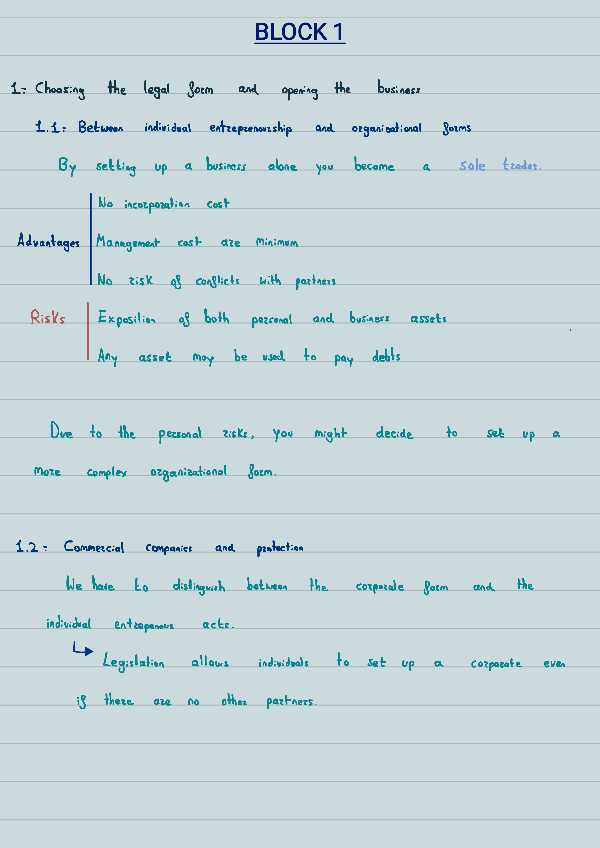 BLOCK 1
1- Choosing the legal form and opening the business
1.1- Between individual entrepreneurship and organisational forms
By setting up a business alone you become a sole trader.
No incorporation cost
Advantages Management cost are minimum
No risk of conflicts with partners
Risks Exposition of both personal and business assets
Any asset may be used to pay debts
Due to the personal risks, you might decide to set up a
more complex organizational form.
1.2- Commercial companies and protection
We have to distinguish between the corporate form and the
individual entrepenous acts.
Legislation allows individuals to set up a corporate even
if there are no other partners.